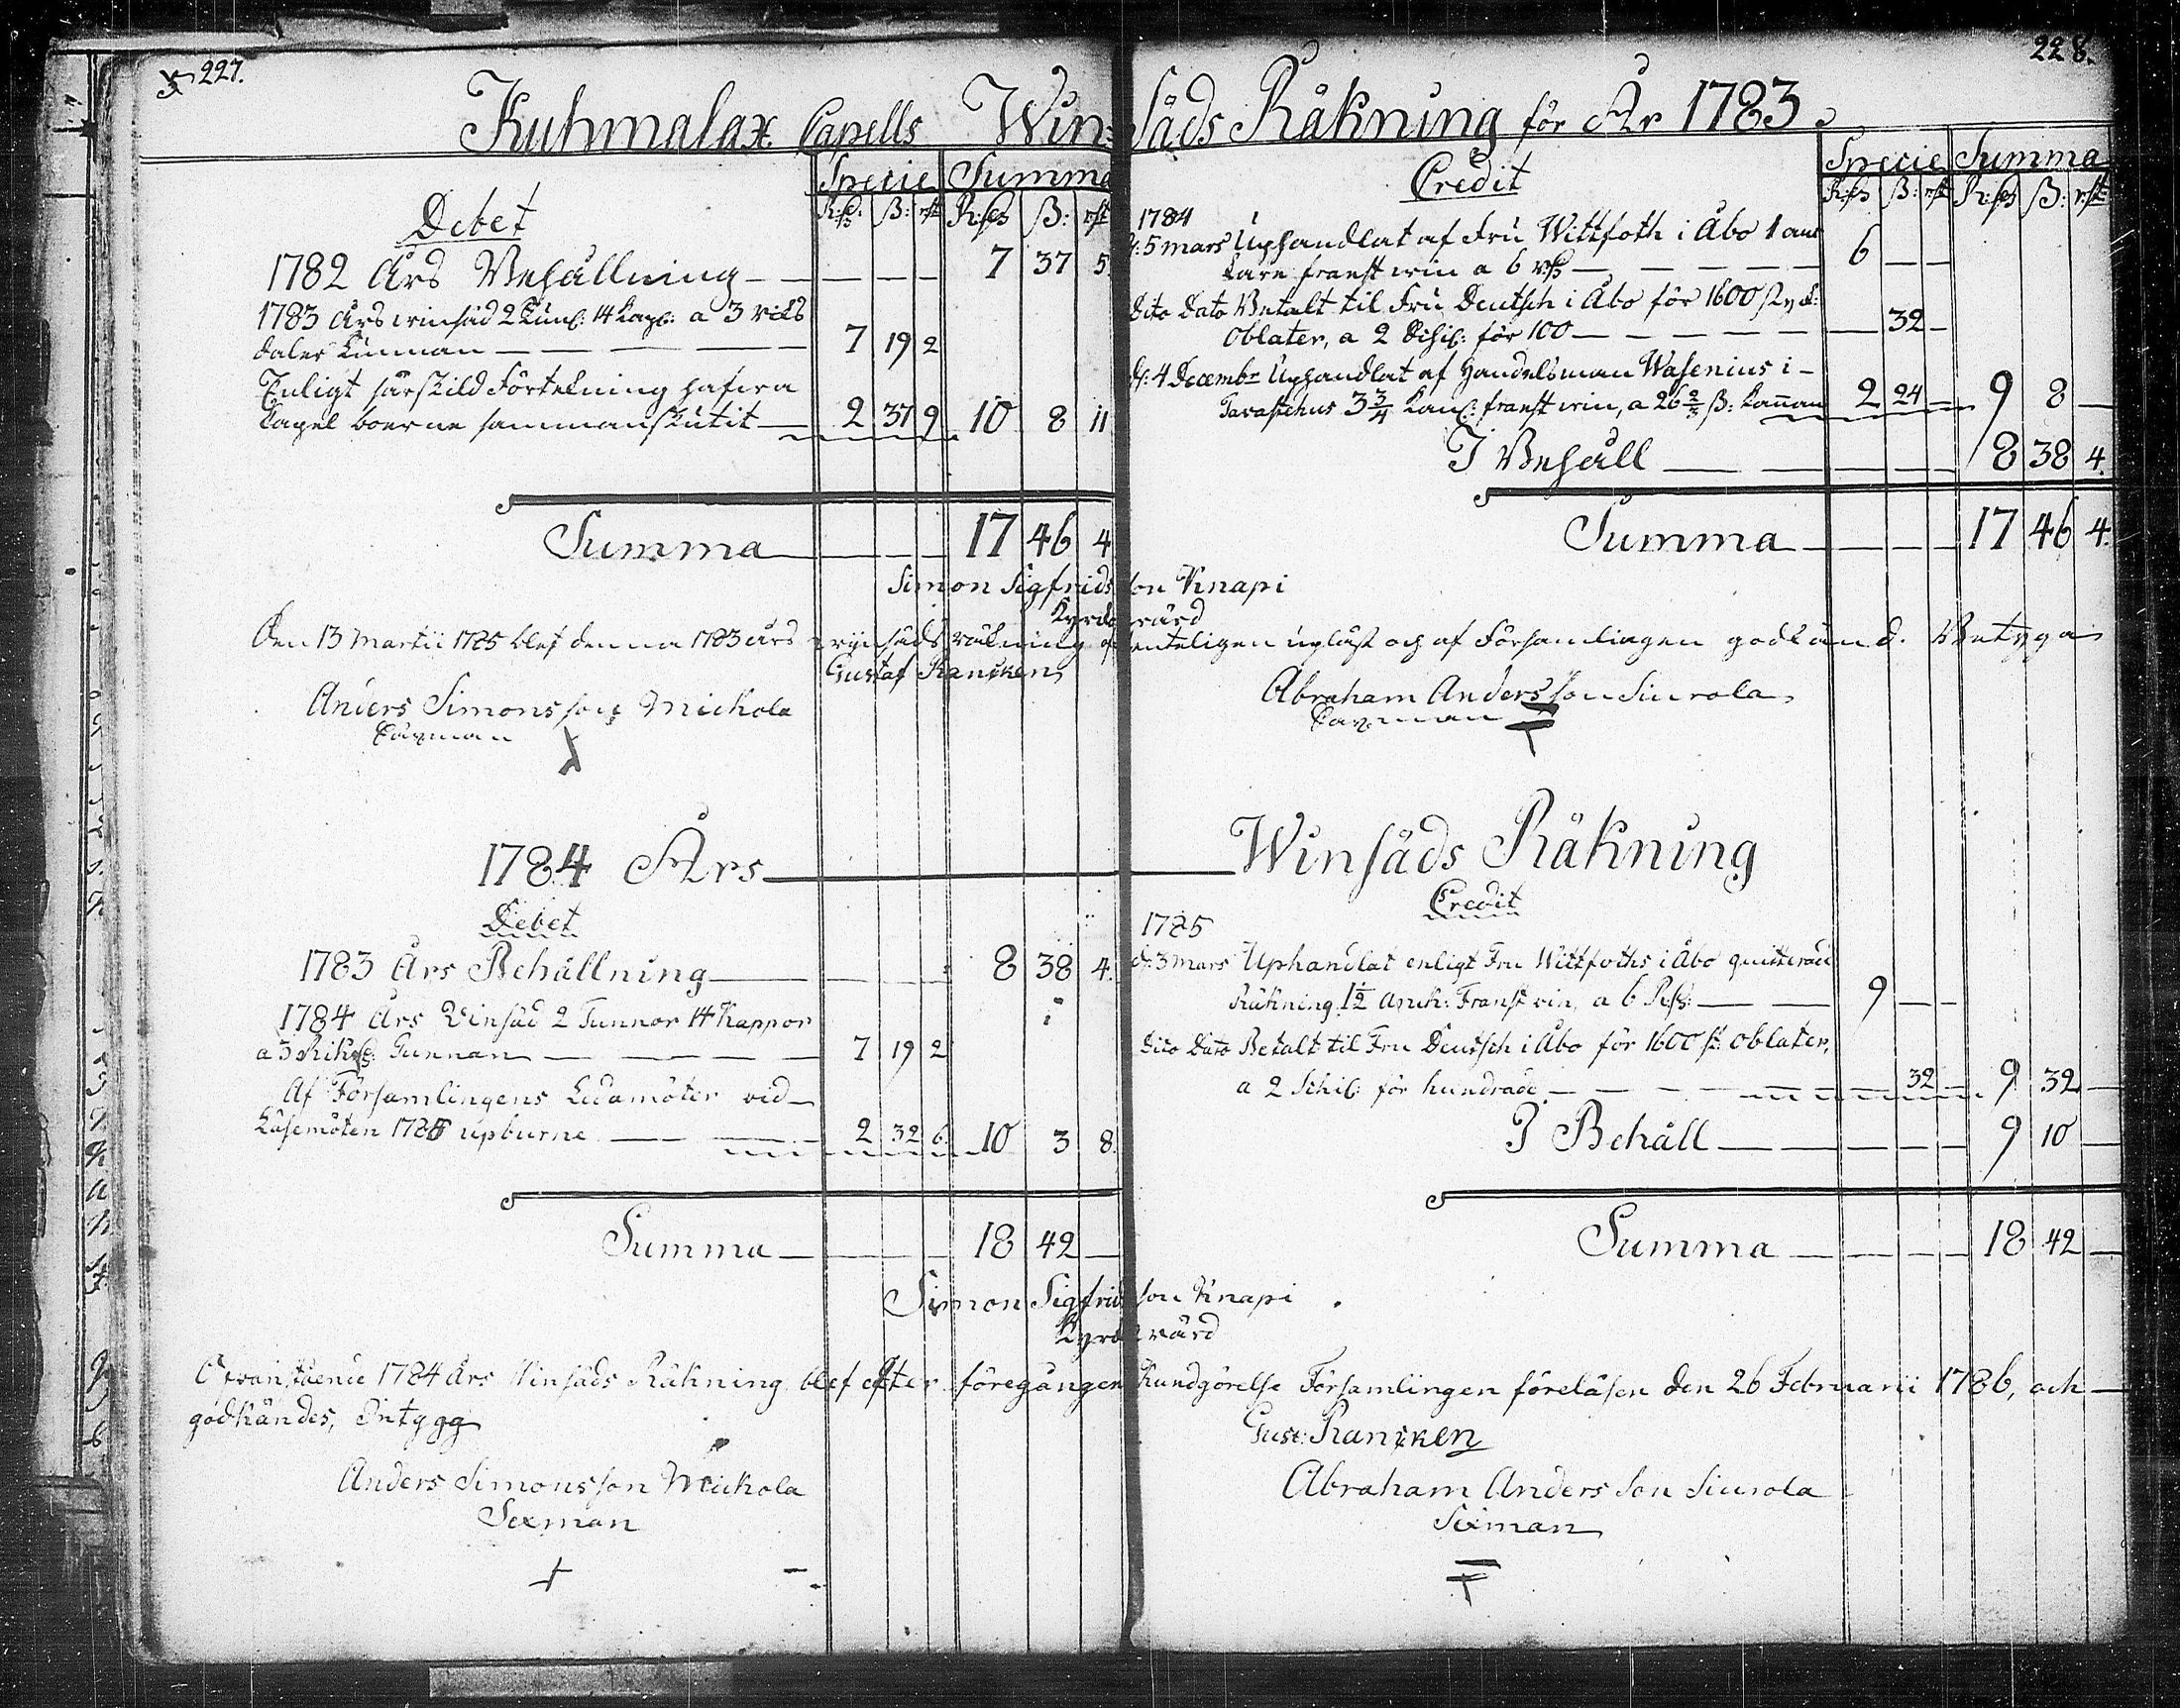 227.
Kuhmalax Capells Win-
Specie Summa
Debet
R:sd: ß: rst: R:sd: ß: rst
1782 Års Behållning 7 37 5
1783 Års winsäd 2 tun: 14 kap: a 3 riks
daler tunnan 7 19 2
Enligt särskild Förtekning hafwa
Capel boerne sammanskutit 2 37 9 10 8 11
Summa 17 46 4
228.
säds Räkning för År 1783
Specie Summa
Credit
R:sd: ß: rst: R:sd: ß: rst:
1784
d: 5 mars Uphandlat af Fru Wittfoth i Åbo 1 anc
kare franst win a 6 rd 6
Dito Dato Betalt til Fru Deutsch i Åbo för 1600 styck:
Oblater, a 2 schil: för 100 32
d: 4 Decembr Uphandlat af Handelsman Wasenius i
Tavastehus 3 3/4 kan: franst win, a 26 2/3 ß: kannan 2 24 9 8
I Behåll 8 38 4.
Summa 17 46 4.
Simon Sigfridsson Knapi
Kyrkovärd
Den 13 Martii 1785 blef denna 1783 års wynsäds räkning offenteligen upläst och af Församlingen godkänd. Betyga
Gustaf Rancken
Anders Simonsson Mickola
Sexman
Abraham Andersson Siurola
Sexman
1784 Års Winsäds Räkning
Debet
1783 Års Behållning 8 38 4.
1784 Års Vinsäd 2 Tunnor 14 Kappor
a 3 Riksd: Tunnan 7 19 2
Af Församlingens Ledamöter vid
Läsemöten 1785 upburne 2 32 6 10 3 8
Summa 18 42
Credit
1785
d: 3 mars Uphandlat enligt Fru Wittfoths i Åbo quitterade
Räkning 1 1/2 Anck: Franst vin, a 6 R:sd: 9
Dito Dato Betalt til Fru Deutsch i Åbo för 1600 st: oblater,
a 2 Schil: för hundrade 32 9 32
I Behåll 9 10
Summa 18 42
Simon Sigfridsson Knapi
Kyrkovärd
Ofvanstående 1784 Års Vinsäds Räkning blef efter föregången Kundgörelse Församlingen föreläsen den 26 Februarii 1786, och
godkändes, Intygg
Gust: Rancken
Anders Simonsson Mickola
Sexman
Abraham Andersson Siurola
Sexman